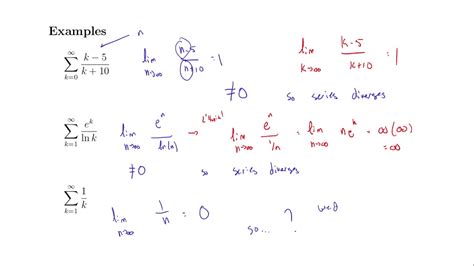 Examples
n
∞ ∑ k=0 (k − 5)/(k + 10) lim n→∞ (n-5)/(n+10) = 1 lim k→∞ (k-5)/(k+10) = 1
≠0 so series diverges
∞ ∑ k=1 e^k/ln k lim n→∞ e^n/ln(n) → lim n→∞ e^n/(1/n) = lim n→∞ n e^n = ∞(∞) = ∞
≠0 so series diverges
∞ ∑ k=1 1/k lim n→∞ 1/n = 0 so... ?